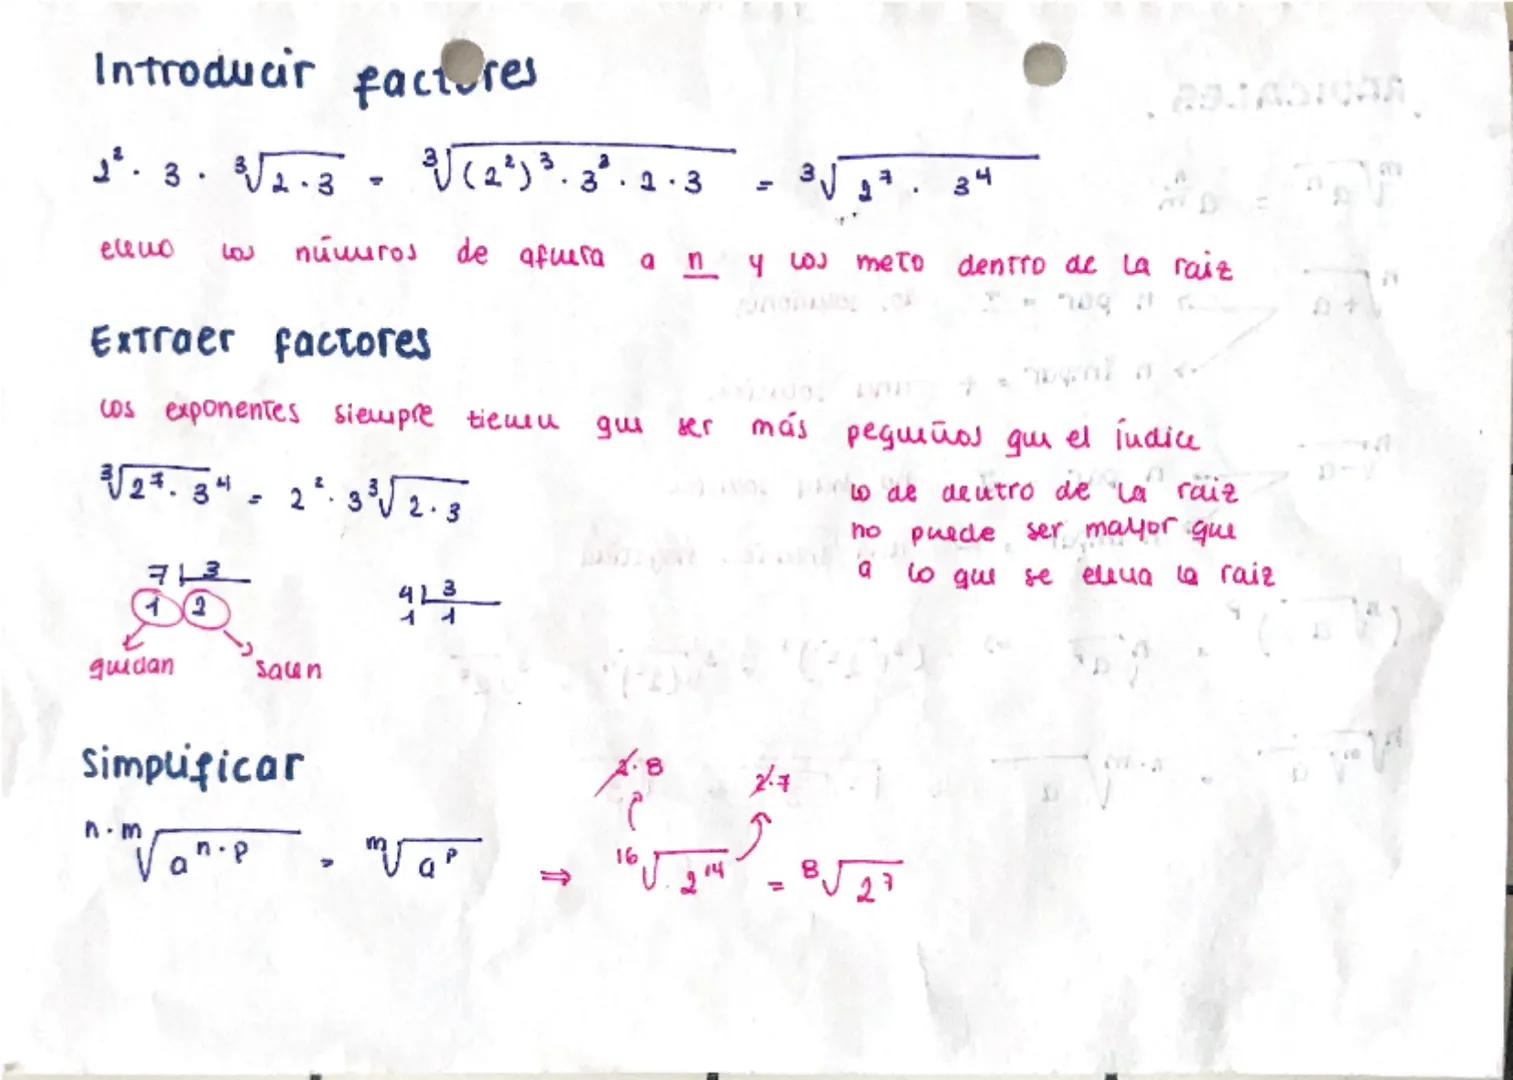 Introducir factores
2² · 3 · ³√2·3 = ³√(2²)³ · 3³ · 2 · 3 = ³√2⁷ · 3⁴
elevo los números de afuera a n y los meto dentro de la raiz
Extraer factores
los exponentes siempre tienen que ser más pequeños que el índice
³√2⁷·3⁴ = 2² · 3 ³√2·3
lo de dentro de la raiz
no puede ser mayor que
a lo que se eleva la raiz
7 | 3
1 2
4 | 3
1 1
quedan
salen
Simplificar
2·8
2·7
n·m√a n·p = m√a p ⇒ ¹⁶√2¹⁴ = ⁸√2⁷